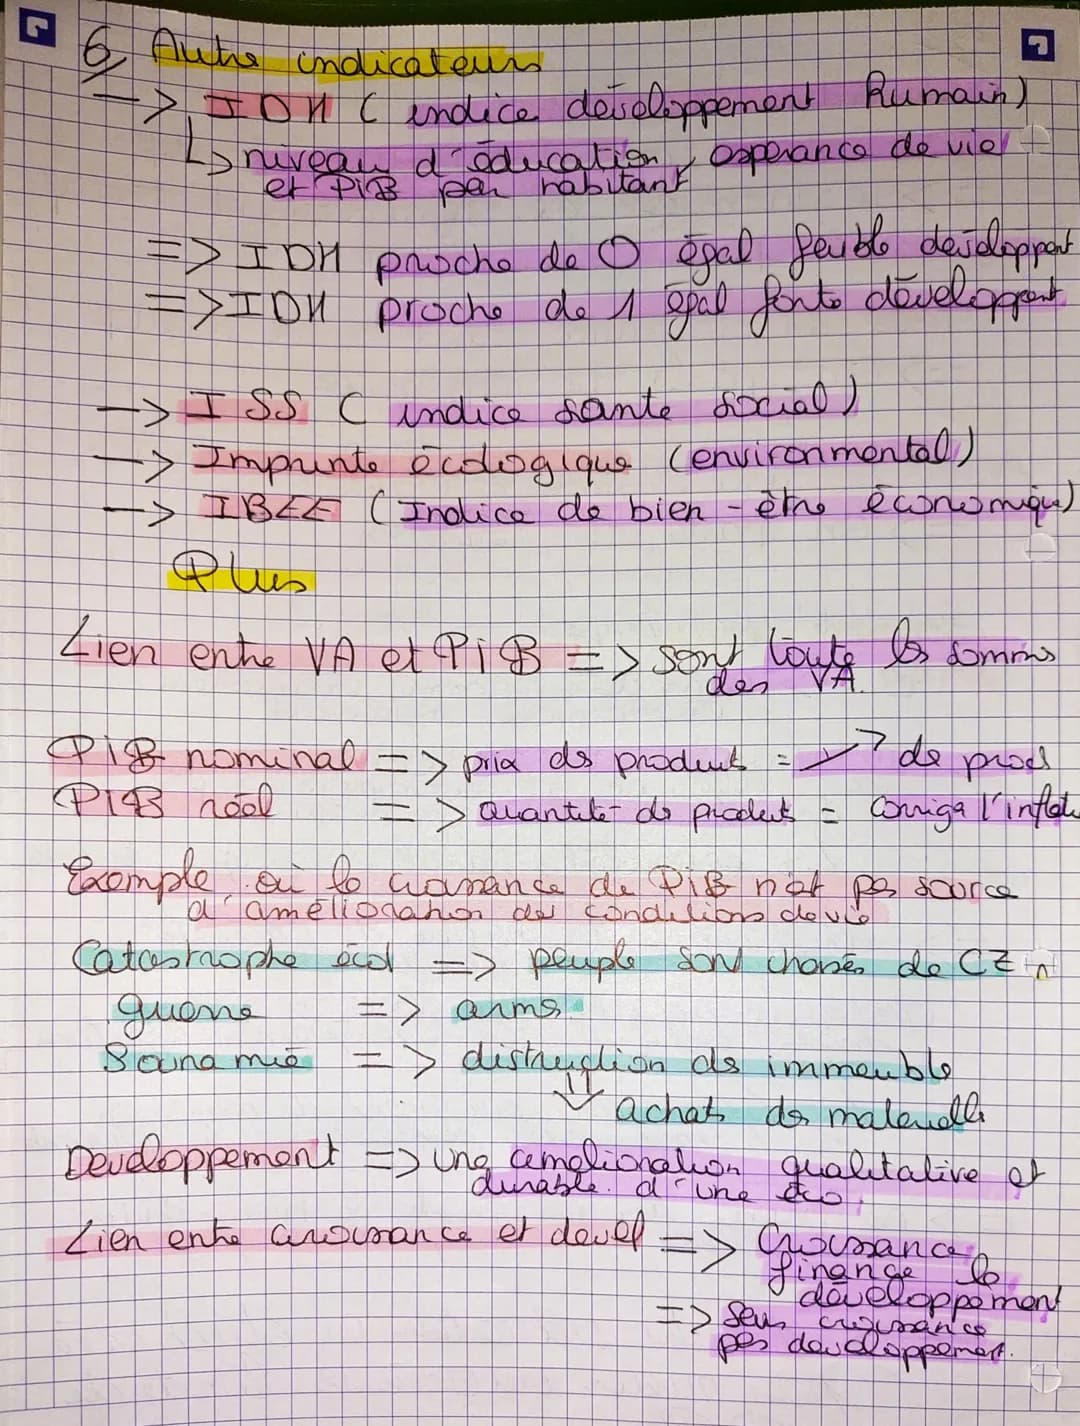 6 Autre indicateurs
-> IDH ( indice développement humain)
↳ niveau d'éducation, espérance de vie
et PiB par habitant
=> IDH proche de 0 égal faible développent
=> IDH proche de 1 égal forte développent
-> ISS ( indice sante social)
-> Imprunte écologique (environmental)
-> IBEE (Indice de bien-être économiqu)
Plus
Lien entre VA et PiB => sont toute les somms
des VA.
PiB nominal => prix ds produit = ↗ de prod
PIB réel => quantité ds produit = corriga l'infla
Exemple où le croissance de PiB n'est pas source
d'amélioration des conditions de vie
Catastrophe écol => peuple sont de
guerre => arms
Sounamie => distruction ds immeuble
⇓ achat ds materiells
Developpement => une amelioration qualitative et
durable d'une éco.
Lien entre croissance et devel => Croissance
finance le
développement
=> seus croissance
pas developpement.